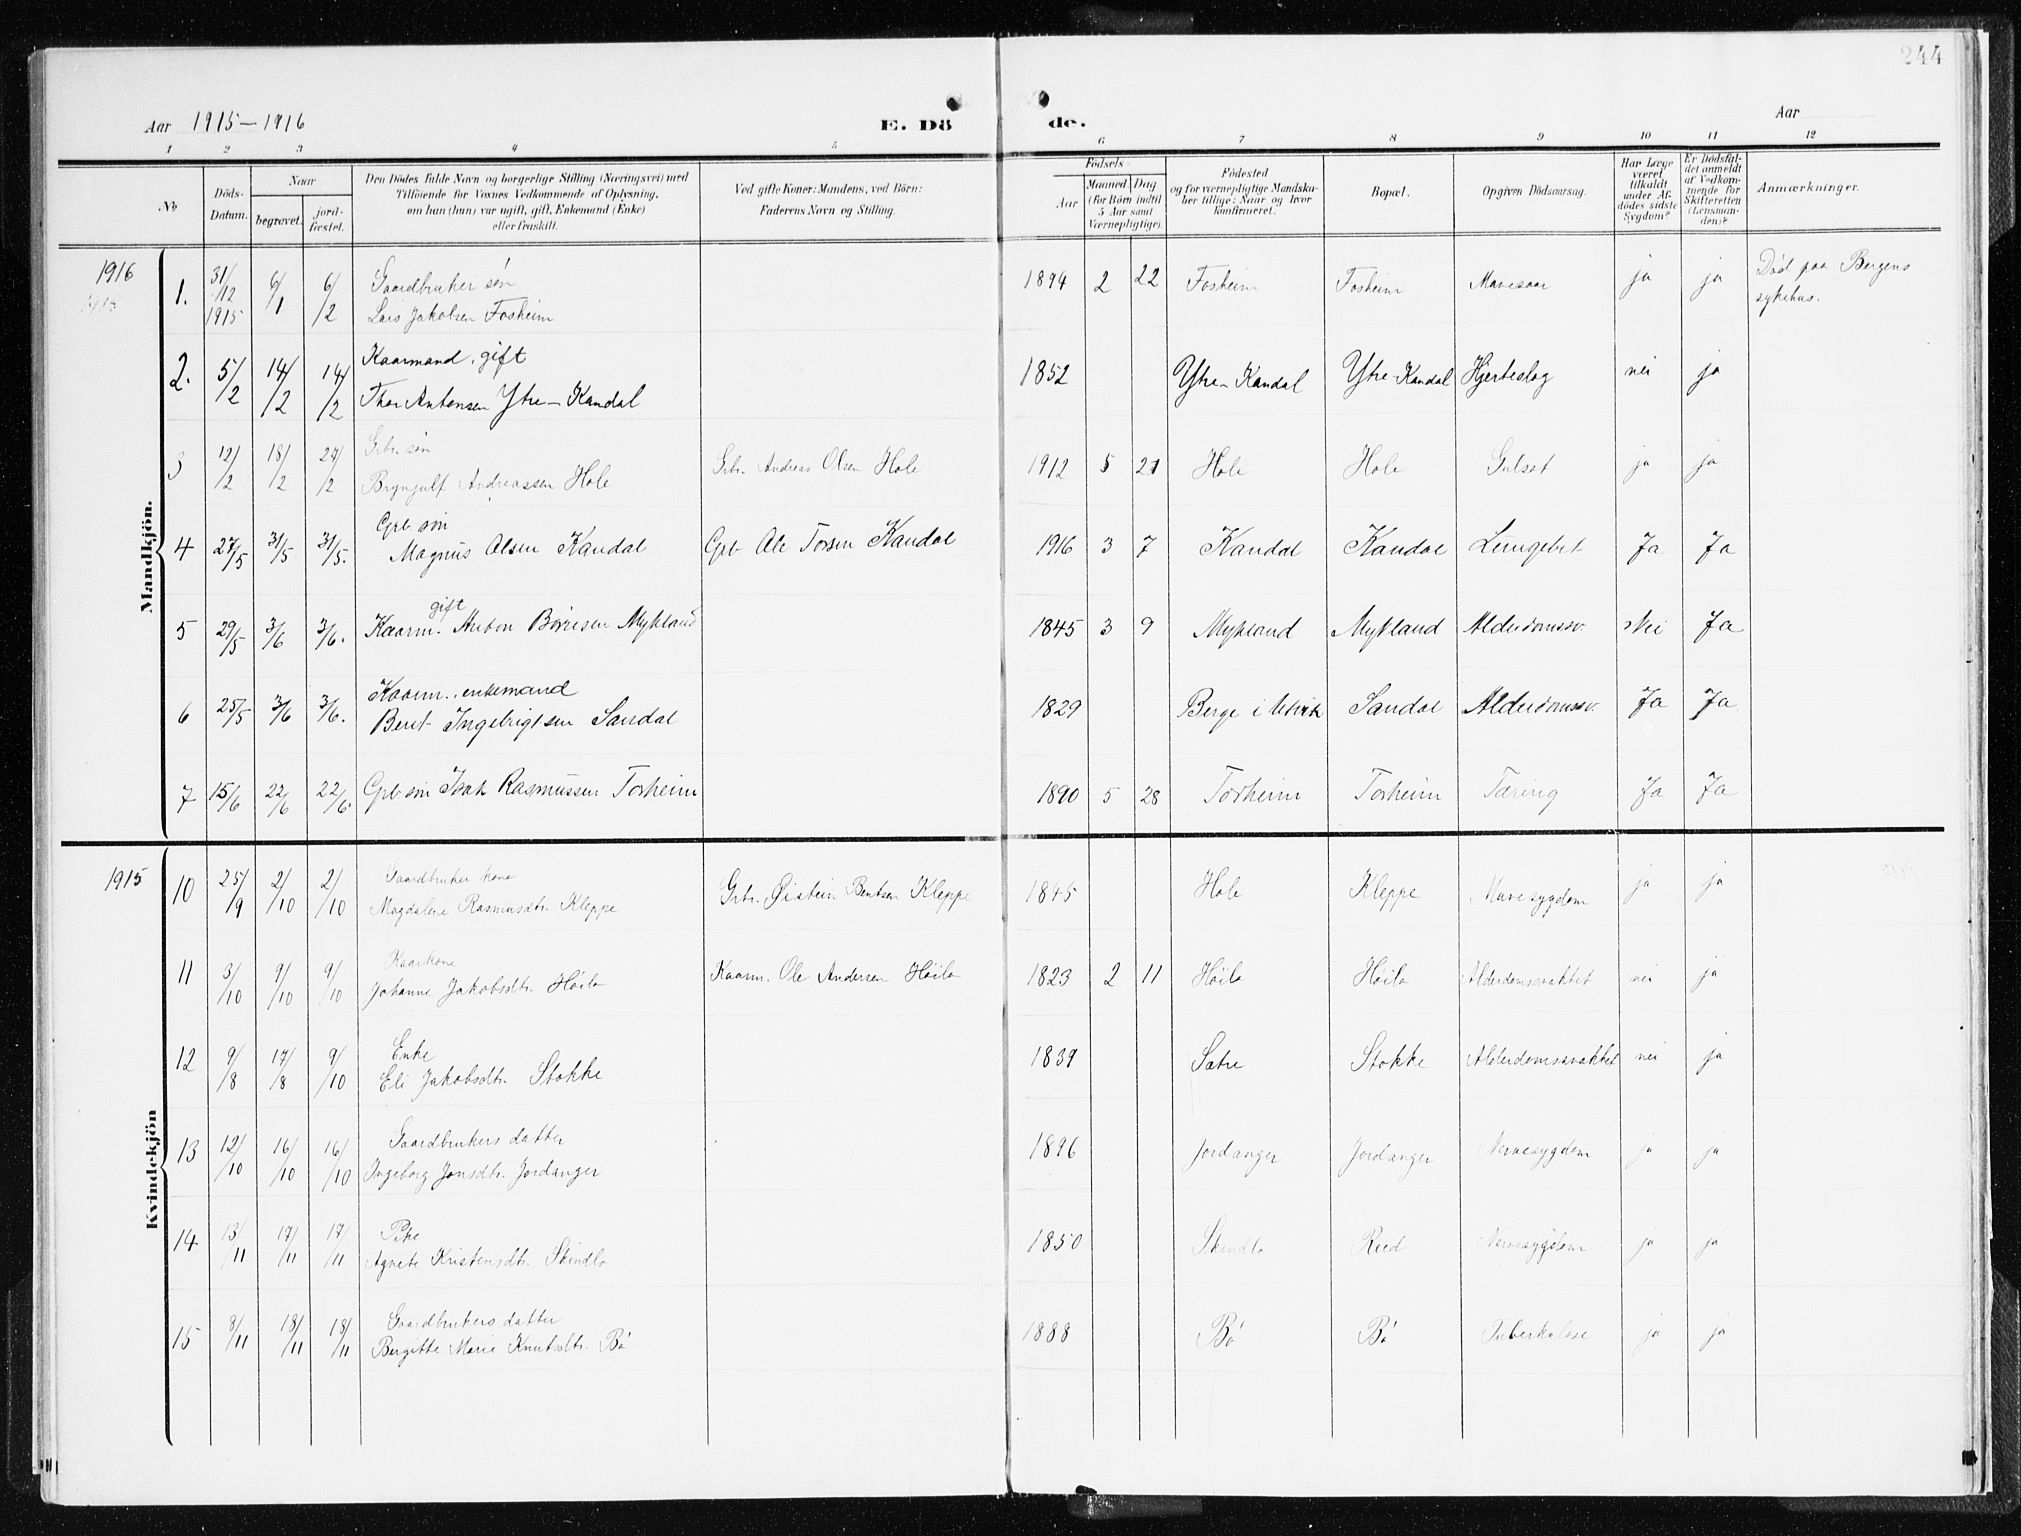 244
Aar 1915—1916 E. Dö de. Aar
1 2 3 4 5 6 7 8 9 10 11 12
No
Döds-
Datum.
Naar
begravet.
jord-
fæstet.
Den Dödes fulde Navn og borgerlige Stilling (Næringsvei) med
Tilföiende for Voxnes Vedkommende af Oplysning,
om han (hun) var ugift, gift, Enkemand (Enke)
eller fraskilt.
Ved gifte Koner: Mandens, ved Börn:
Faderens Navn og Stilling.
Födsels-
Aar
Maaned Dag
(for Börn indtil
5 Aar samt
Værnepligtige).
Födested
og for værnepligtige Mandska-
ber tillige: Naar og hvor
konfirmeret.
Bopæl.
Opgiven Dödsaarsag.
Har Læge
været
tilkaldt
under Af-
dödes sidste
Sygdom?
Er Dödsfal-
det anmeldt
af Vedkom-
mende for
Skifteretten
(Lensman-
den)?
Anmærkninger.
Mandkjön.
1916
1. 31/12 1915 6/1 6/2 Gaardbruker søn
Lars Jakobsen Fosheim 1894 2 22 Fosheim Fosheim Mavesaar ja ja Död paa Bergens
sykehus.
2. 5/2 14/2 14/2 Kaarmand, gift
Thor Antonsen Ytre-Kandal 1852 Ytre-Kandal Ytre-Kandal Hjerteslag nei ja
3 12/2 18/2 27/2 Grbr. søn
Brynjulf Andreassen Hole Grbr. Andreas Olsen Hole 1912 5 21 Hole Hole Gulsot ja ja
4 27/5 31/5 31/5. Grb. søn
Magnus Olsen Kandal Grb. Ole Torsen Kandal 1916 3 7 Kandal Kandal Lungebet Ja Ja
gift
5 29/5 3/6 3/6. Kaarm. Anton Börresen Mykland 1845 3 9 Mykland Mykland Alderdomssv. Nei Ja
6 25/5 3/6 3/6. Kaarm., enkemand
Beret Ingebrigtsen Sandal 1829 Berge i Utvik Sandal Alderdomssv. Ja Ja
7 15/6 22/6 22/6. Grb. søn Isak Rasmussen Torheim 1890 5 28 Torheim Torheim Tæring Ja Ja
Kvindekjön
1915
10 25/9 2/10 2/10 Gaardbruker kone
Magdalene Rasmusdtr. Kleppe Grbr. Øistein Bentsen Kleppe 1845 Hole Kleppe Mavesygdom ja ja
11 3/10 9/10 9/10 Kaarkone
Johanne Jakobsdtr. Höilo Kaarm. Ole Andersen Höilo 1823 2 11 Höilo Höilo Alderdomssvakhet nei ja
12 9/8 17/8 9/10 Enke
Eli Jakobsdtr. Stokke 1839 Sætre Stokke Alderdomssvakhet nei ja
13 12/10 16/10 16/10 Gaardbrukers datter
Ingeborg Jonsdtr. Jordanger 1896 Jordanger Jordanger Nervesygdom ja ja
14 13/11 17/11 17/11 Pike
Agnete Kristensdtr. Skindlo 1850 Skindlo Reed Nervesygdom ja ja
15 8/11 18/11 18/11 Gaardbrukers datter
Bergitte Marie Knutsdtr. Bö 1888 Bö Bö Tuberkulose ja ja